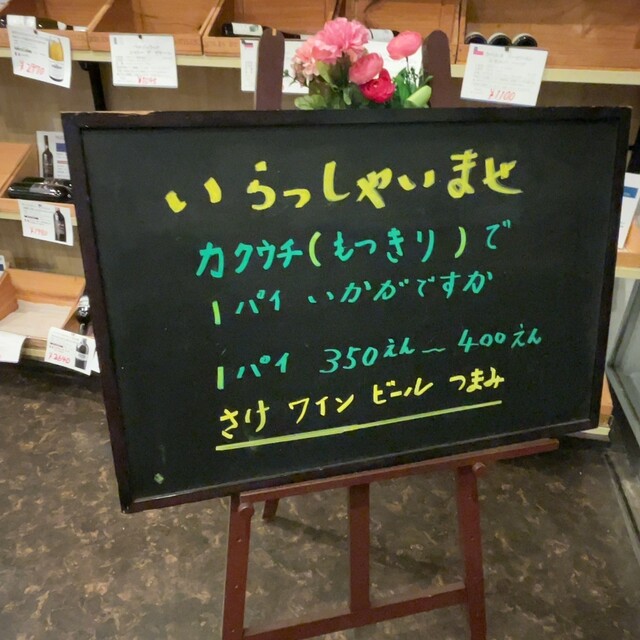 いらっしゃいませ
カクウチ(もっきり)で
1パイ いかがですか
1パイ 350えん〜400えん
さけ ワイン ビール つまみ
¥1100